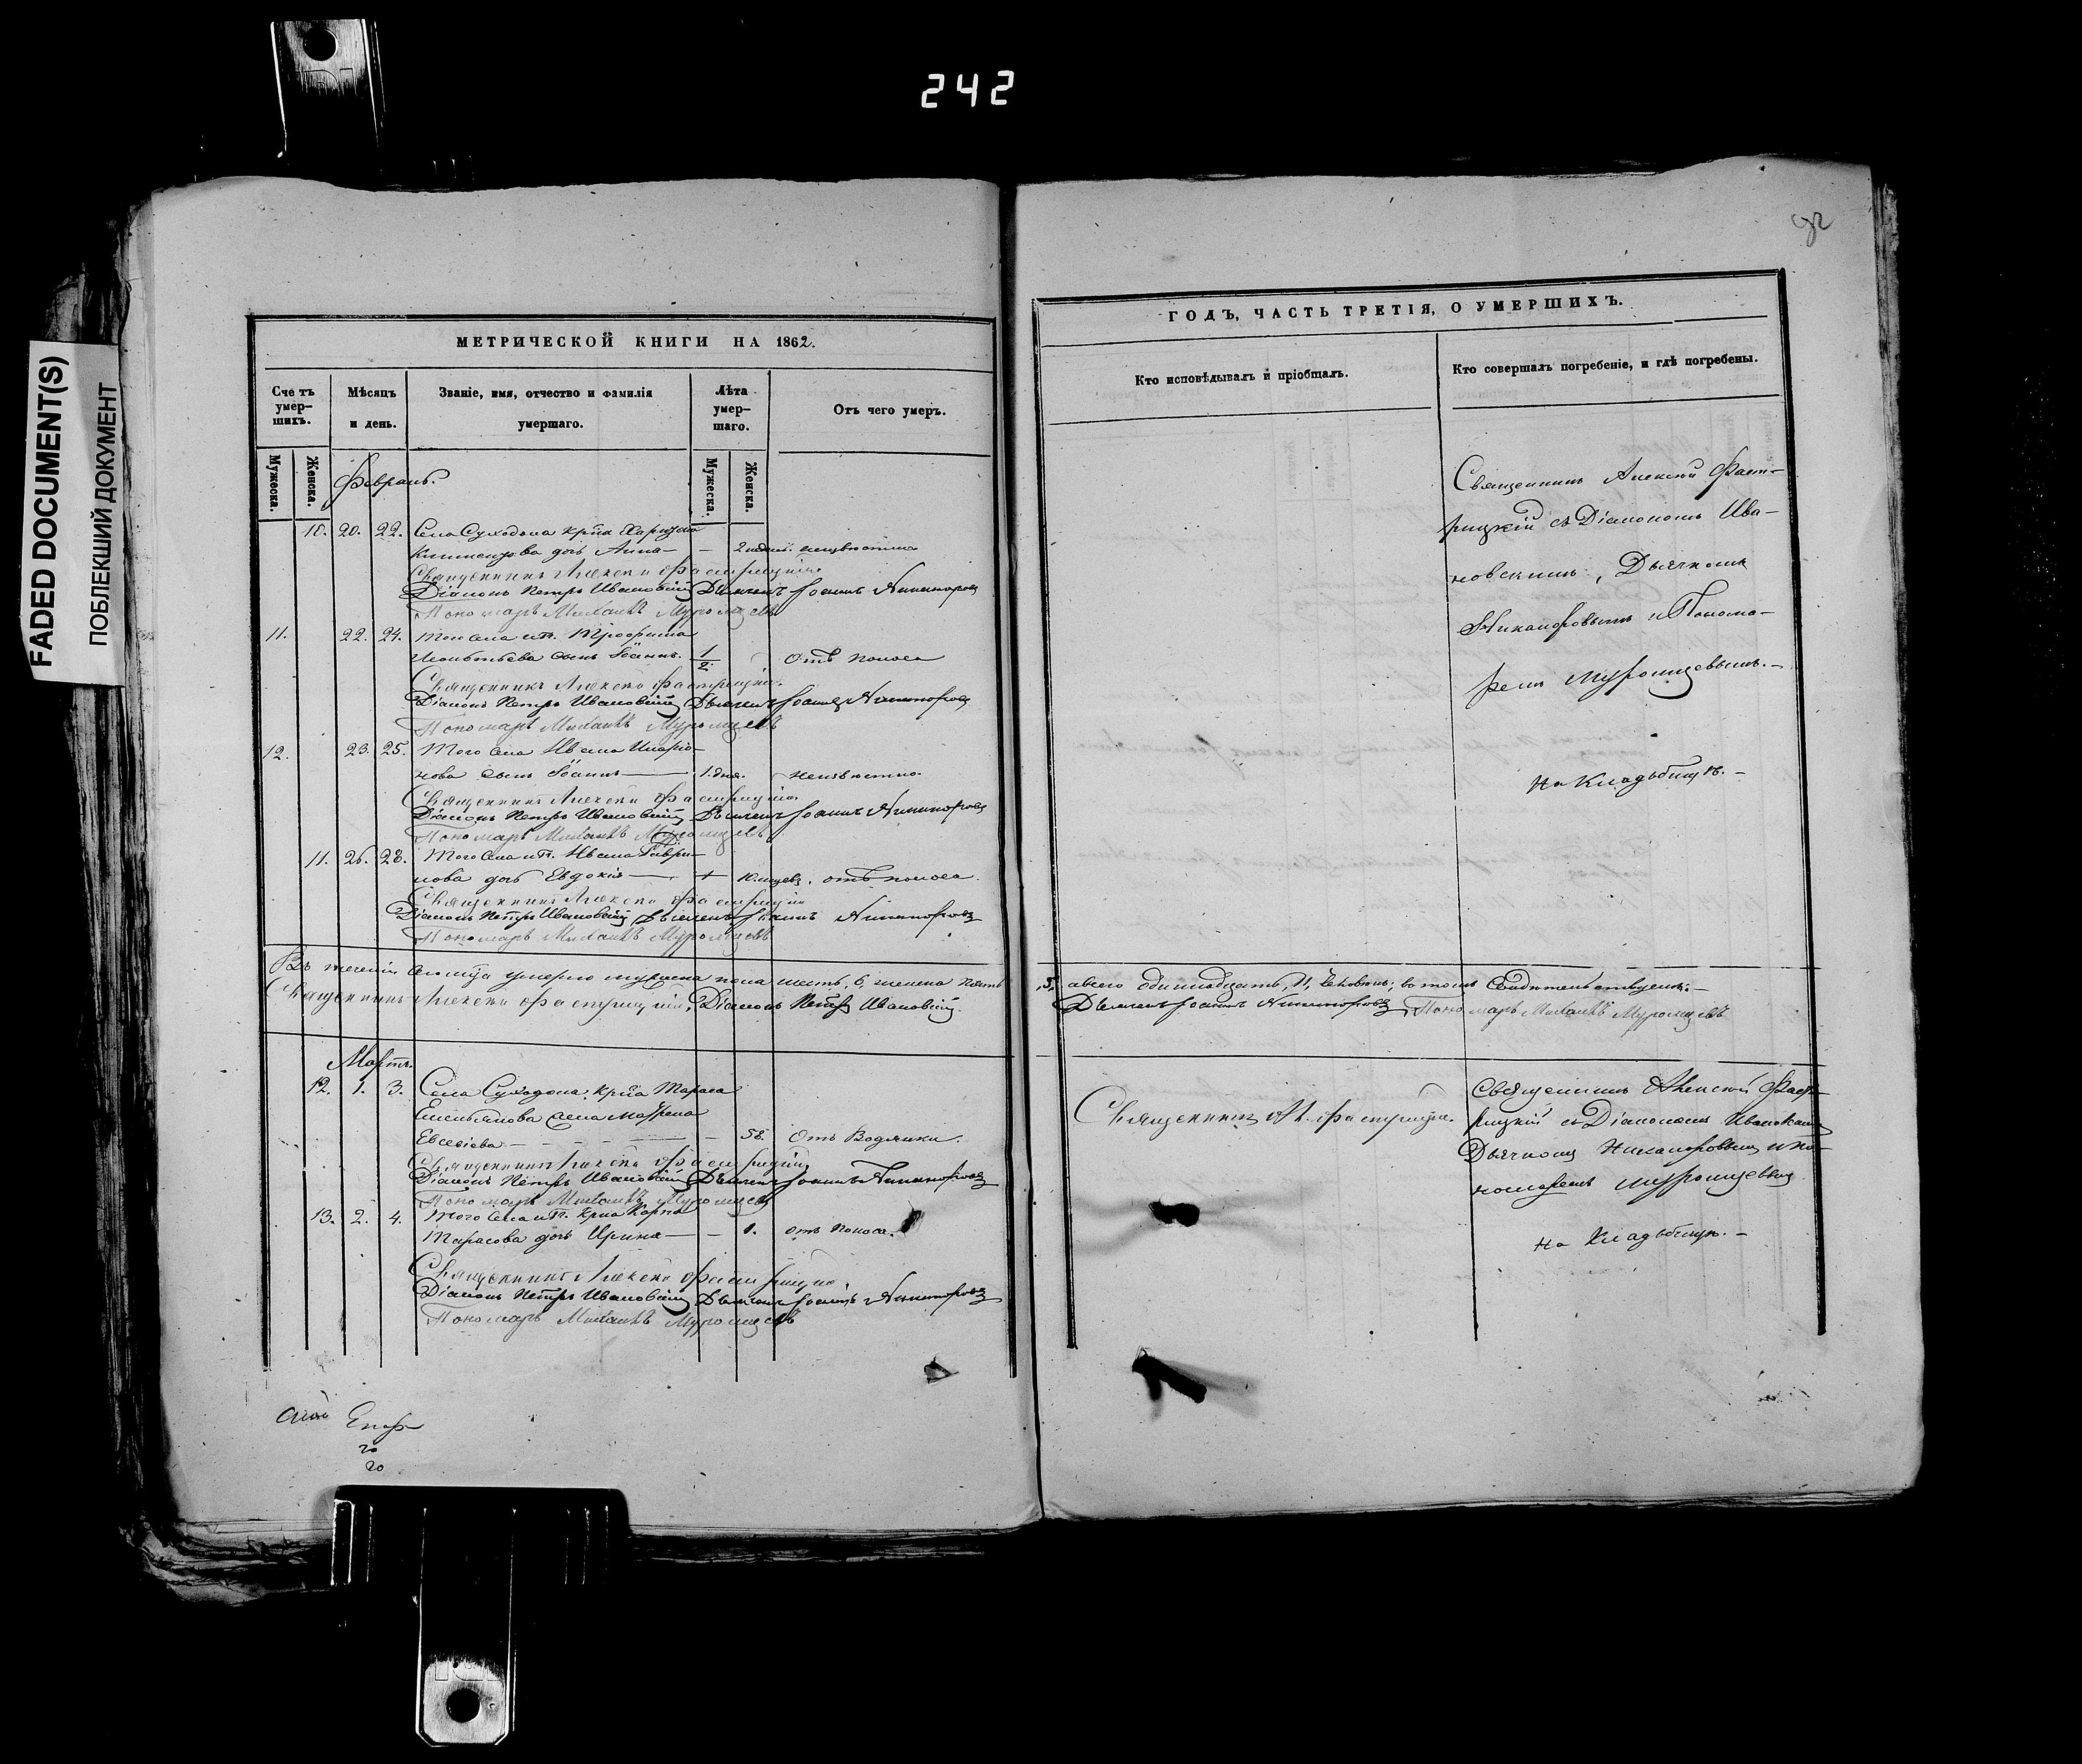 242
FADED DOCUMENT(S)
ПОБЛЕКШИЙ ДОКУМЕНТ
МЕТРИЧЕСКОЙ КНИГИ НА 1862.
Счетъ умер–шихъ.
Мѣсяцъ и день.
Званіе, имя, отчество и фамилія умершаго.
Лѣта умер–шаго.
Отъ чего умеръ.
Мужеска.
Женска.
Мужеска.
Женска.
Февраль.
10. 20. 22. Села Суходола крѣна
дочь Анна — – 2 недѣл. неизвѣстно
Священникъ Алексѣй Фастрицкій
Діаконъ Петръ Ивановскій Дьячекъ Іоаннъ Никаноровъ
Пономарь Михаилъ Муромцевъ
11. 22. 24. Трофима
сынъ Іоаннъ. 1/2 Отъ поноса
Священникъ Алексѣй Фастрицкій.
Діаконъ Петръ Ивановскій Дьячекъ Іоаннъ Никаноровъ
Пономарь Михаилъ Муромцевъ
12. 23. 25. Того села Ивана Иларіо–
нова сынъ Іоаннъ — 1. дня. неизвѣстно.
Священникъ Алексѣй Фастрицкій.
Діаконъ Петръ Ивановскій Дьячекъ Іоаннъ Никаноровъ
Пономарь Михаилъ Муромцевъ
11. 26. 28. Того села Ивана Гаври–
лова дочь Евдокія — 10. мѣсяц. отъ поноса.
Священникъ Алексѣй Фастрицкій
Діаконъ Петръ Ивановскій Дьячекъ Іоаннъ Никаноровъ
Пономарь Михаилъ Муромцевъ
Въ теченіи умерло мужеска пола шесть, 6, женска пять
Священникъ Алексѣй Фастрицкій, Діаконъ Петръ Ивановскій.
Мартъ.
12. 1. 3. Села Суходола. крѣна Тараса
Емельянова жена Мавра
Евсеева — – 58. Отъ Водянки.
Священникъ Алексѣй Фастрицкій
Діаконъ Петръ Ивановскій Дьячекъ Іоаннъ Никаноровъ
Пономарь Михаилъ Муромцевъ
13. 2. 4. Того села Карпа
Тарасова дочь Ирина — – 1. отъ поноса.
Священникъ Алексѣй Фастрицкій
Діаконъ Петръ Ивановскій Дьячекъ Іоаннъ Никаноровъ
Пономарь Михаилъ Муромцевъ
20
20
ГОДЪ, ЧАСТЬ ТРЕТІЯ, О УМЕРШИХЪ.
Кто исповѣдывалъ и пріобщалъ.
Кто совершалъ погребеніе, и гдѣ погребены.
Священникъ Алексѣй Фаст–
рицкій съ Діакономъ Ива–
новскимъ, Дьячкомъ
Никаноровымъ и Понома–
ремъ Муромцевымъ.–
На Кладбищѣ.–
5, а всего одиннадцать, 11, человѣкъ; въ томъ свидѣтельствуемъ.–
Дьячекъ Іоаннъ Никаноровъ, Пономарь Михаилъ Муромцевъ
Священникъ Ал. Фастрицкій.
Священникъ Алексѣй Фаст–
рицкій съ Діакономъ Ивановскимъ
Дьячкомъ Никаноровымъ и По–
номаремъ Муромцевымъ
На Кладбищѣ.–